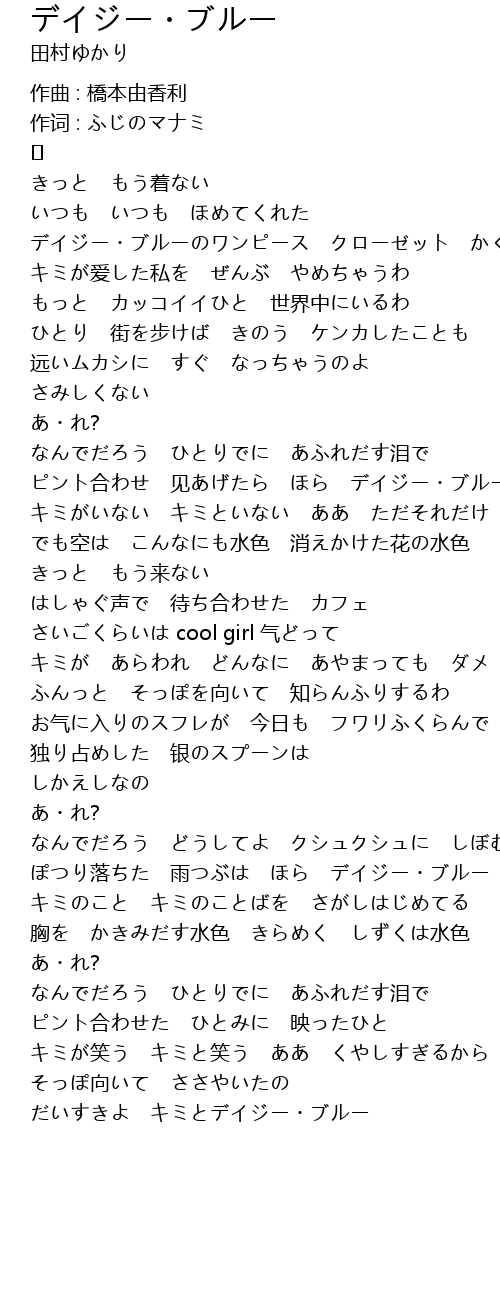 デイジー・ブルー
田村ゆかり
作曲 : 橋本由香利
作词 : ふじのマナミ
きっと　もう着ない
いつも　いつも　ほめてくれた
デイジー・ブルーのワンピース　クローゼット　かく
キミが爱した私を　ぜんぶ　やめちゃうわ
もっと　カッコイイひと　世界中にいるわ
ひとり　街を歩けば　きのう　ケンカしたことも
远いムカシに　すぐ　なっちゃうのよ
さみしくない
あ・れ?
なんでだろう　ひとりでに　あふれだす泪で
ピント合わせ　见あげたら　ほら　デイジー・ブルー
キミがいない　キミといない　ああ　ただそれだけ
でも空は　こんなにも水色　消えかけた花の水色
きっと　もう来ない
はしゃぐ声で　待ち合わせた　カフェ
さいごくらいは cool girl 气どって
キミが　あらわれ　どんなに　あやまっても　ダメ
ふんっと　そっぽを向いて　知らんふりするわ
お气に入りのスフレが　今日も　フワリふくらんで
独り占めした　银のスプーンは
しかえしなの
あ・れ?
なんでだろう　どうしてよ　クシュクシュに　しぼむ
ぽつり落ちた　雨つぶは　ほら　デイジー・ブルー
キミのこと　キミのことばを　さがしはじめてる
胸を　かきみだす水色　きらめく　しずくは水色
あ・れ?
なんでだろう　ひとりでに　あふれだす泪で
ピント合わせた　ひとみに　映ったひと
キミが笑う　キミと笑う　ああ　くやしすぎるから
そっぽ向いて　ささやいたの
だいすきよ　キミとデイジー・ブルー